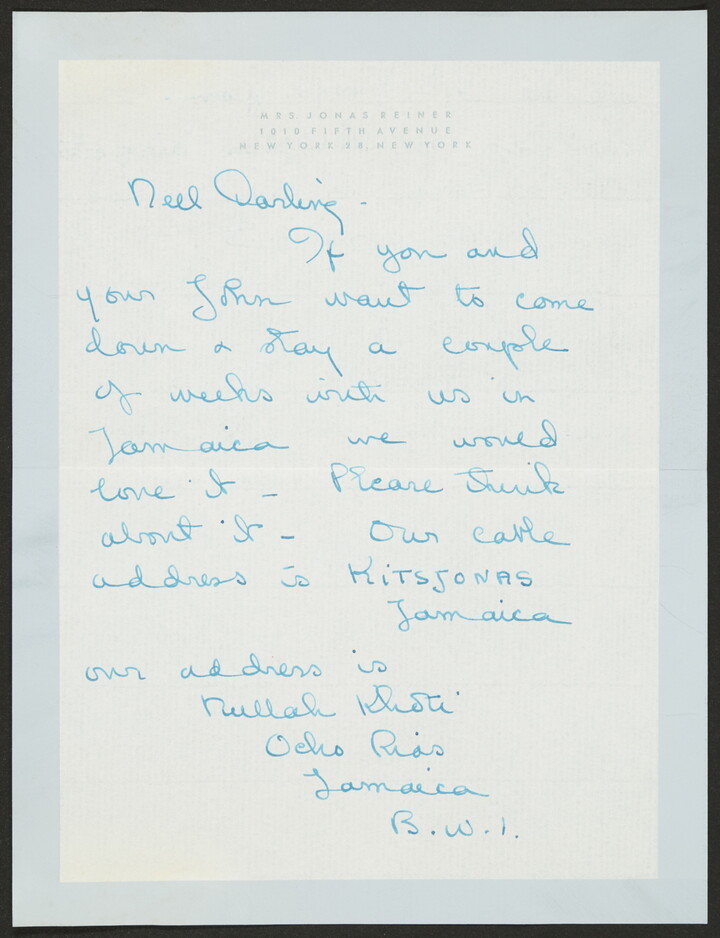 MRS JONAS REINER
1010 FIFTH AVENUE
NEW YORK 28, NEW YORK
Nell Darling -
If you and
your John want to come
down & stay a couple
of weeks with us in
Jamaica we would
love it - Please think
about it - Our cable
address is KITSJONAS
Jamaica
our address is
Nullah Khoti
Ocho Rios
Jamaica
B.W.I.